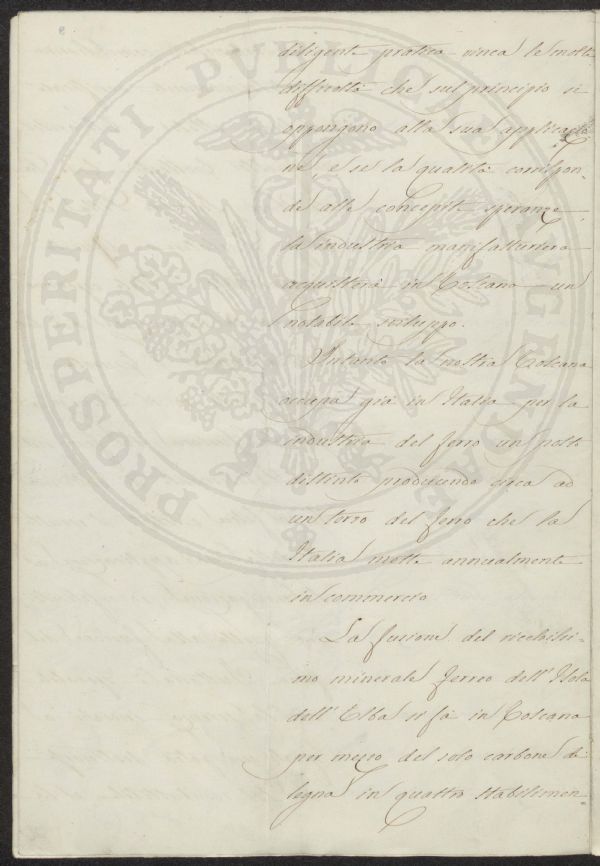 diligente pratica vinca le molte
difficoltà che sul principio si
oppongono alla sua applicazio
ne, e se la qualità corrispon-
de alle concepite speranze,
la industria manifatturiera
acquisterà in Toscana un
notabile sviluppo.
Intanto la nostra Toscana
occupa già in Italia per la
industria del ferro un posto
distinto producendo circa ad
un terzo del ferro che la
Italia mette annualmente
in commercio
La fusione del ricchissi-
mo minerale ferreo dell'Isola
dell'Elba si fa in Toscana
per mezzo del solo carbone di
legna in quattro stabilimen-
PROSPERITATI PUBLICAE AUGENDAE